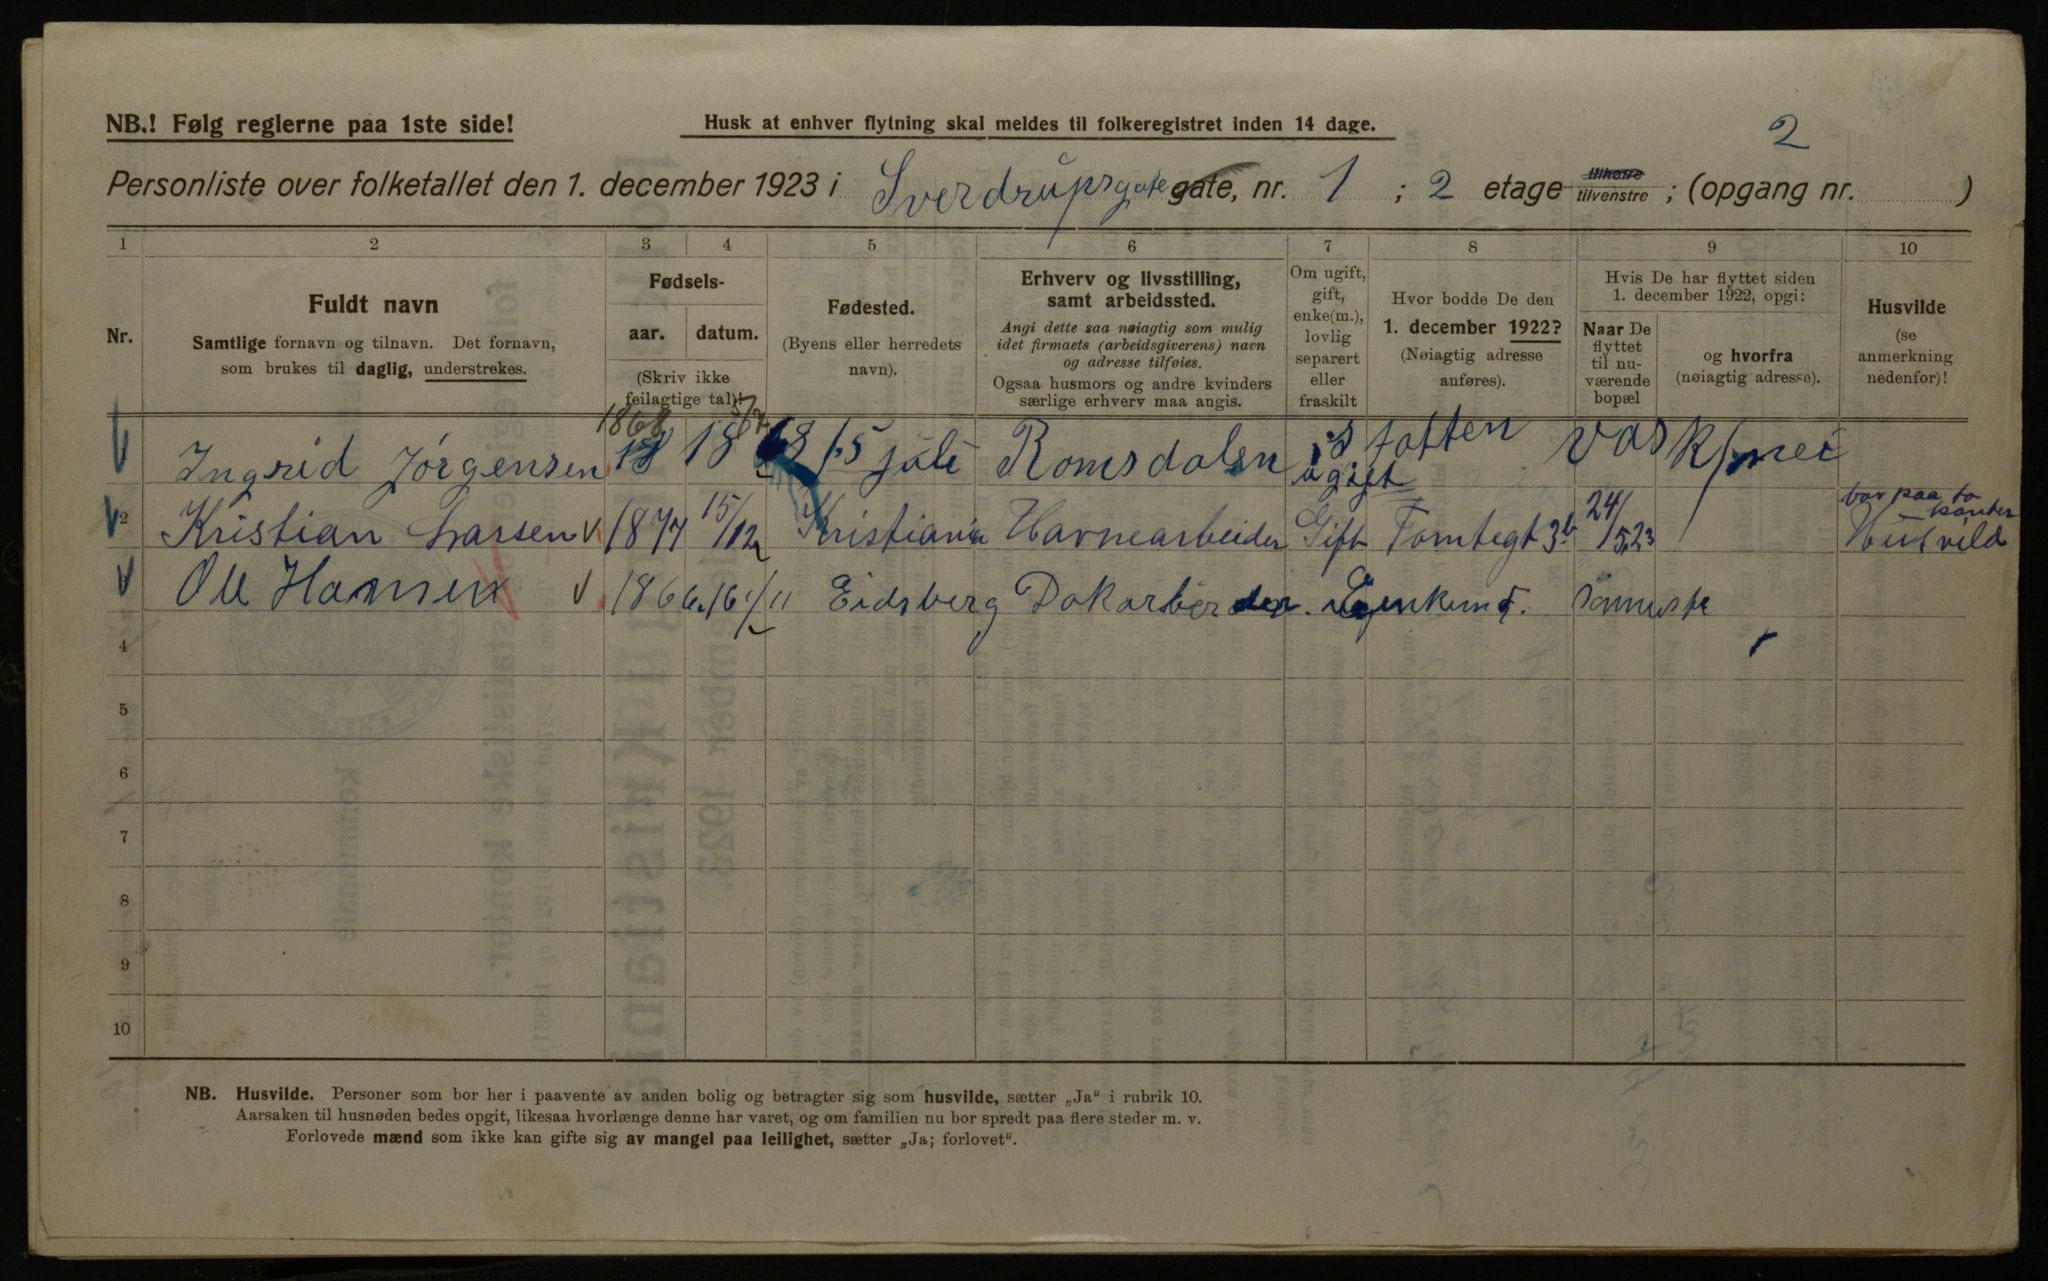 2
NB.! Følg reglerne paa 1ste side! Husk at enhver flytning skal meldes til folkeregistret inden 14 dage.
Personliste over folketallet den 1. december 1923 i Sverdrupsgate gate, nr. 1 ; 2 etage tilhøire tilvenstre ; (opgang nr. )
1 2 3 4 5 6 7 8 9 10
Nr.
Fuldt navn
Samtlige fornavn og tilnavn. Det fornavn,
som brukes til daglig, understrekes.
Fødsels-
aar. datum.
(Skriv ikke
feilagtige tal)!
Fødested.
(Byens eller herredets
navn).
Erhverv og livsstilling,
samt arbeidssted.
Angi dette saa nøiagtig som mulig
idet firmaets (arbeidsgiverens) navn
og adresse tilføies.
Ogsaa husmors og andre kvinders
særlige erhverv maa angis.
Om ugift,
gift,
enke(m.),
lovlig
separert
eller
fraskilt
Hvor bodde De den
1. december 1922?
(Nøiagtig adresse
anføres).
Hvis De har flyttet siden
1. december 1922, opgi:
Naar De
flyttet
til nu-
værende
bopæl
og hvorfra
(nøiagtig adresse).
Husvilde
(se
anmerkning
nedenfor)!
1868
Ingrid Jørgensen 18 1868 15 juli Romsdalen ugift vask nei
2 Kristian Larsen 1877 15/12 Kristiania Havnearbeider Gift Tomtegt 3b 24/5 23 bor paa to kanter Husvild
Ole Hansen 1866 16/11 Eidsberg Enkem
4
5
6
7
8
9
10
NB. Husvilde. Personer som bor her i paavente av anden bolig og betragter sig som husvilde, sætter „Ja" i rubrik 10.
Aarsaken til husnøden bedes opgit, likesaa hvorlænge denne har varet, og om familien nu bor spredt paa flere steder m. v.
Forlovede mænd som ikke kan gifte sig av mangel paa leilighet, sætter „Ja; forlovet".